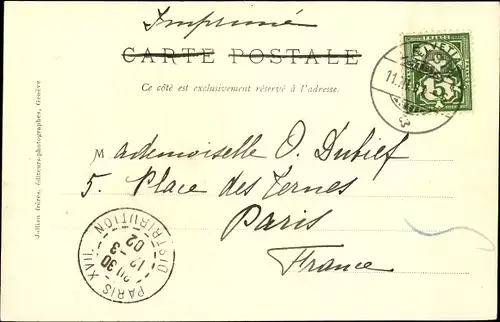 Imprimé
CARTE POSTALE
Ce côté est exclusivement réservé à l'adresse.
FRANCO
HELVETIA
5
Mademoiselle O. Dubief
5. Place des Ternes
Paris
France
PARIS XVII
DISTRIBUTION
20 30
12 - 3
02
Jullien frères, éditeurs-photographes, Genève